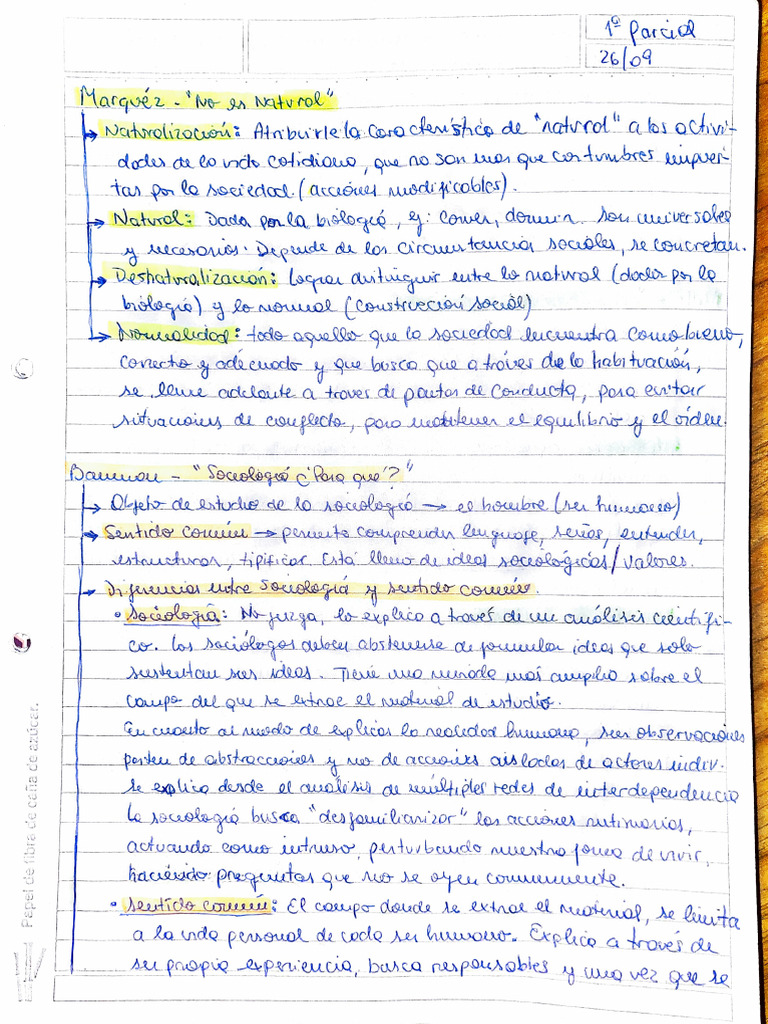 1º Parcial
26/09
Marquéz - "No es Natural"
Naturalización: Atribuirle la característica de "natural" a las activi-
dades de la vida cotidiana, que no son mas que costumbres impues-
tas por la sociedad. (acciones modificables).
Natural: Dada por la biología, ej: comer, dormir. Son universales
y necesarios. Depende de las circunstancias sociales, se concretan.
Desnaturalización: Lograr distinguir entre lo natural (dado por la
biología) y lo normal (construcción social)
Normalidad: todo aquello que la sociedad encuentra como bueno,
correcto y adecuado y que busca que a tráves de la habituación,
se lleve adelante a traves de pautas de conducta, para evitar
situaciones de conflicto, para mantener el equilibrio y el orden.
Bauman - "Sociología ¿Para que?"
Objeto de estudio de la sociología → el hombre (ser humano)
Sentido común → permite comprender lenguaje, señas, entender,
estructuras, tipificar. Está lleno de ideas sociológicas/valores.
Diferencias entre Sociología y sentido común.
• Sociología: No juzga, lo explica a través de un análisis científi-
co. Los sociólogos deben abstenerse de formular ideas que solo
sustentan sus ideas. Tiene una mirada más amplia sobre el
campo del que se extrae el material de estudio.
En cuanto al modo de explicar la realidad humana, sus observaciones
parten de abstracciones y no de acciones aisladas de actores indiv.
Se explica desde el análisis de múltiples redes de interdependencia
La sociología busca "desfamiliarizar" las acciones rutinarias,
actuando como intruso, perturbando nuestra forma de vivir,
haciéndo preguntas que no se oyen comunmente.
• Sentido común: El campo donde se extrae el material, se limita
a la vida personal de cada ser humano. Explica a través de
su propia experiencia, busca responsables y una vez que se
Papel de fibra de caña de azúcar.